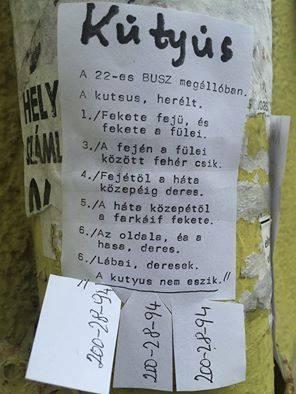 Kutyus
A 22-es BUSZ megállóban.
A kutsus, herélt.
1./Fekete fejü, és
fekete a fülei.
3./A fején a fülei
között fehér csik.
4./Fejétől a háta
közepéig deres.
5./A háta közepétől
a farkáif fekete.
6./Az oldala, éa a
hasa, deres.
6./Lábai, deresek.
"A kutyus nem eszik."
200-28-94
200-28-94
200-28-94
HELY
SZÁML